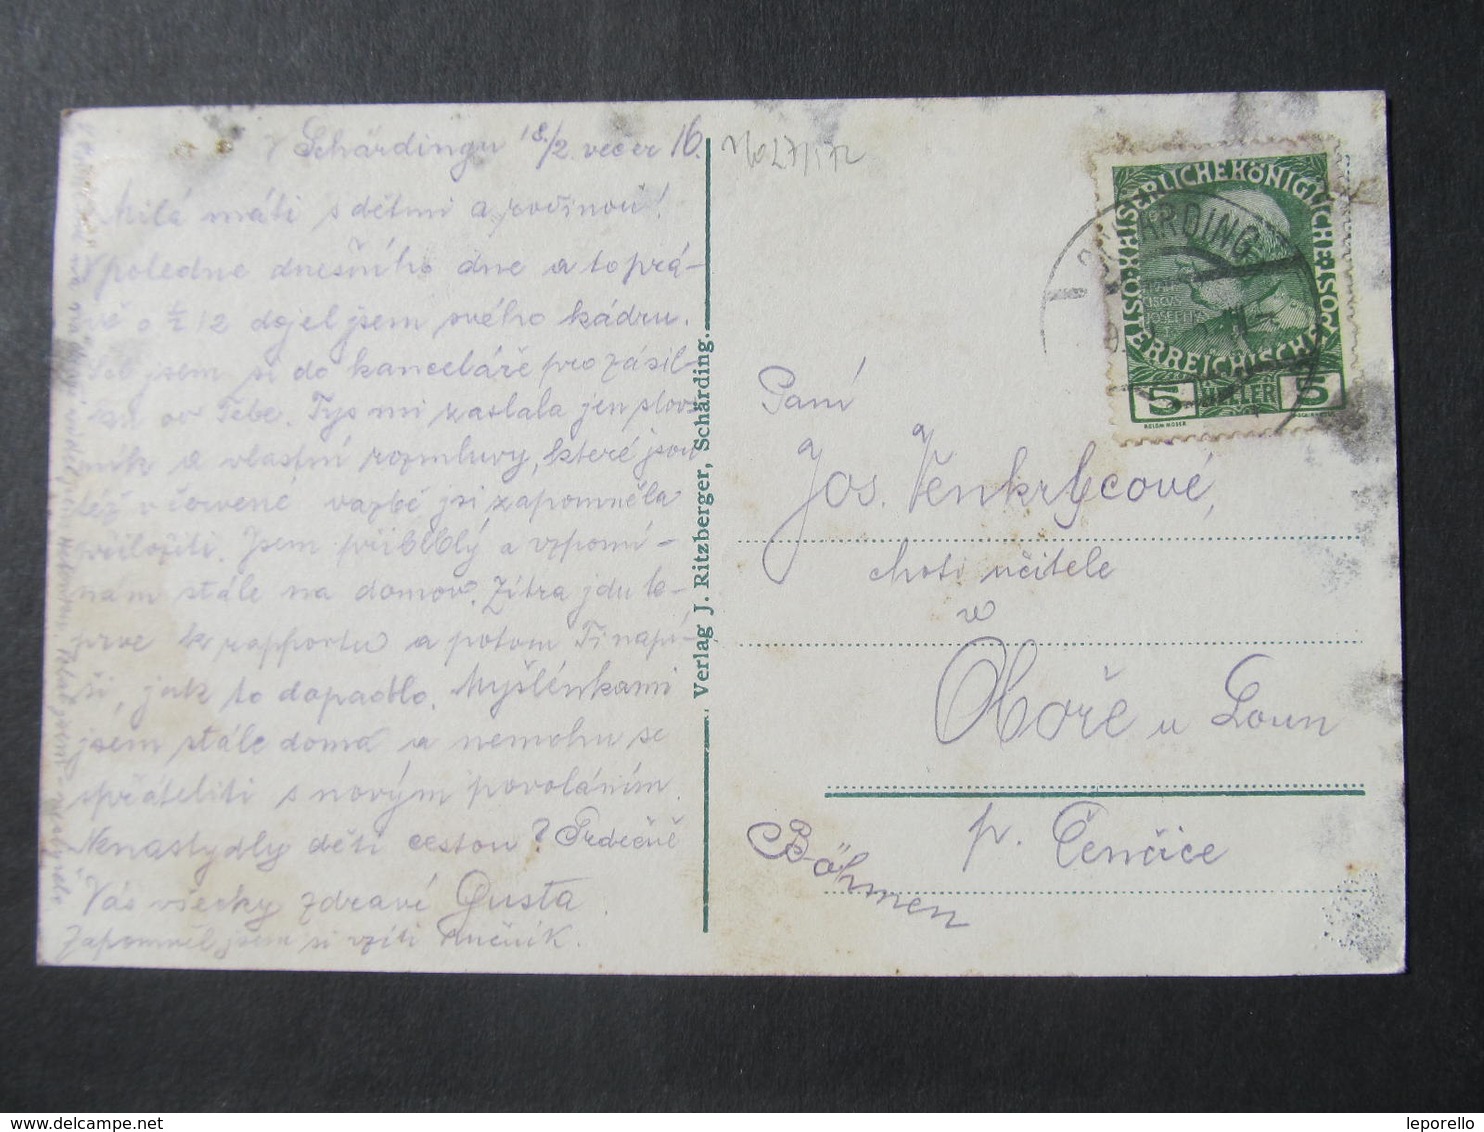 V Schärdingu 18./2. večer 16.
Milá máti s dětmi a rodinou!
V poledne dnešního dne a to prá-
vě o ½ 12 dojel jsem svého kádru.
jsem si do kanceláře pro zásil-
ku od Tebe. Tys mi zaslala jen slov-
ník a vlastní rozmluvy, které jsou
též v červené vazbě jsi zapomněla
přiložiti. Jsem přiblblý a vzpomí-
nám stále na domov. Zítra jdu te-
prve k rapportu a potom Ti napí-
ši, jak to dopadlo. Myšlénkami
jsem stále doma a nemohu se
spřáteliti s novým povoláním.
Nenastydly děti cestou? Srdečně
Vás všecky zdraví Gusta.
Zapomněl jsem si vzíti ručník.
Verlag J. Ritzberger, Schärding.
SCHÄRDING
KAISERLICHE KÖNIGLICHE
ÖSTERREICHISCHE POST
5 HELLER 5
Paní
Jos. Venkrbcové,
choti učitele
v
Oboře u Loun
p. Čenčice
Böhmen
leporello